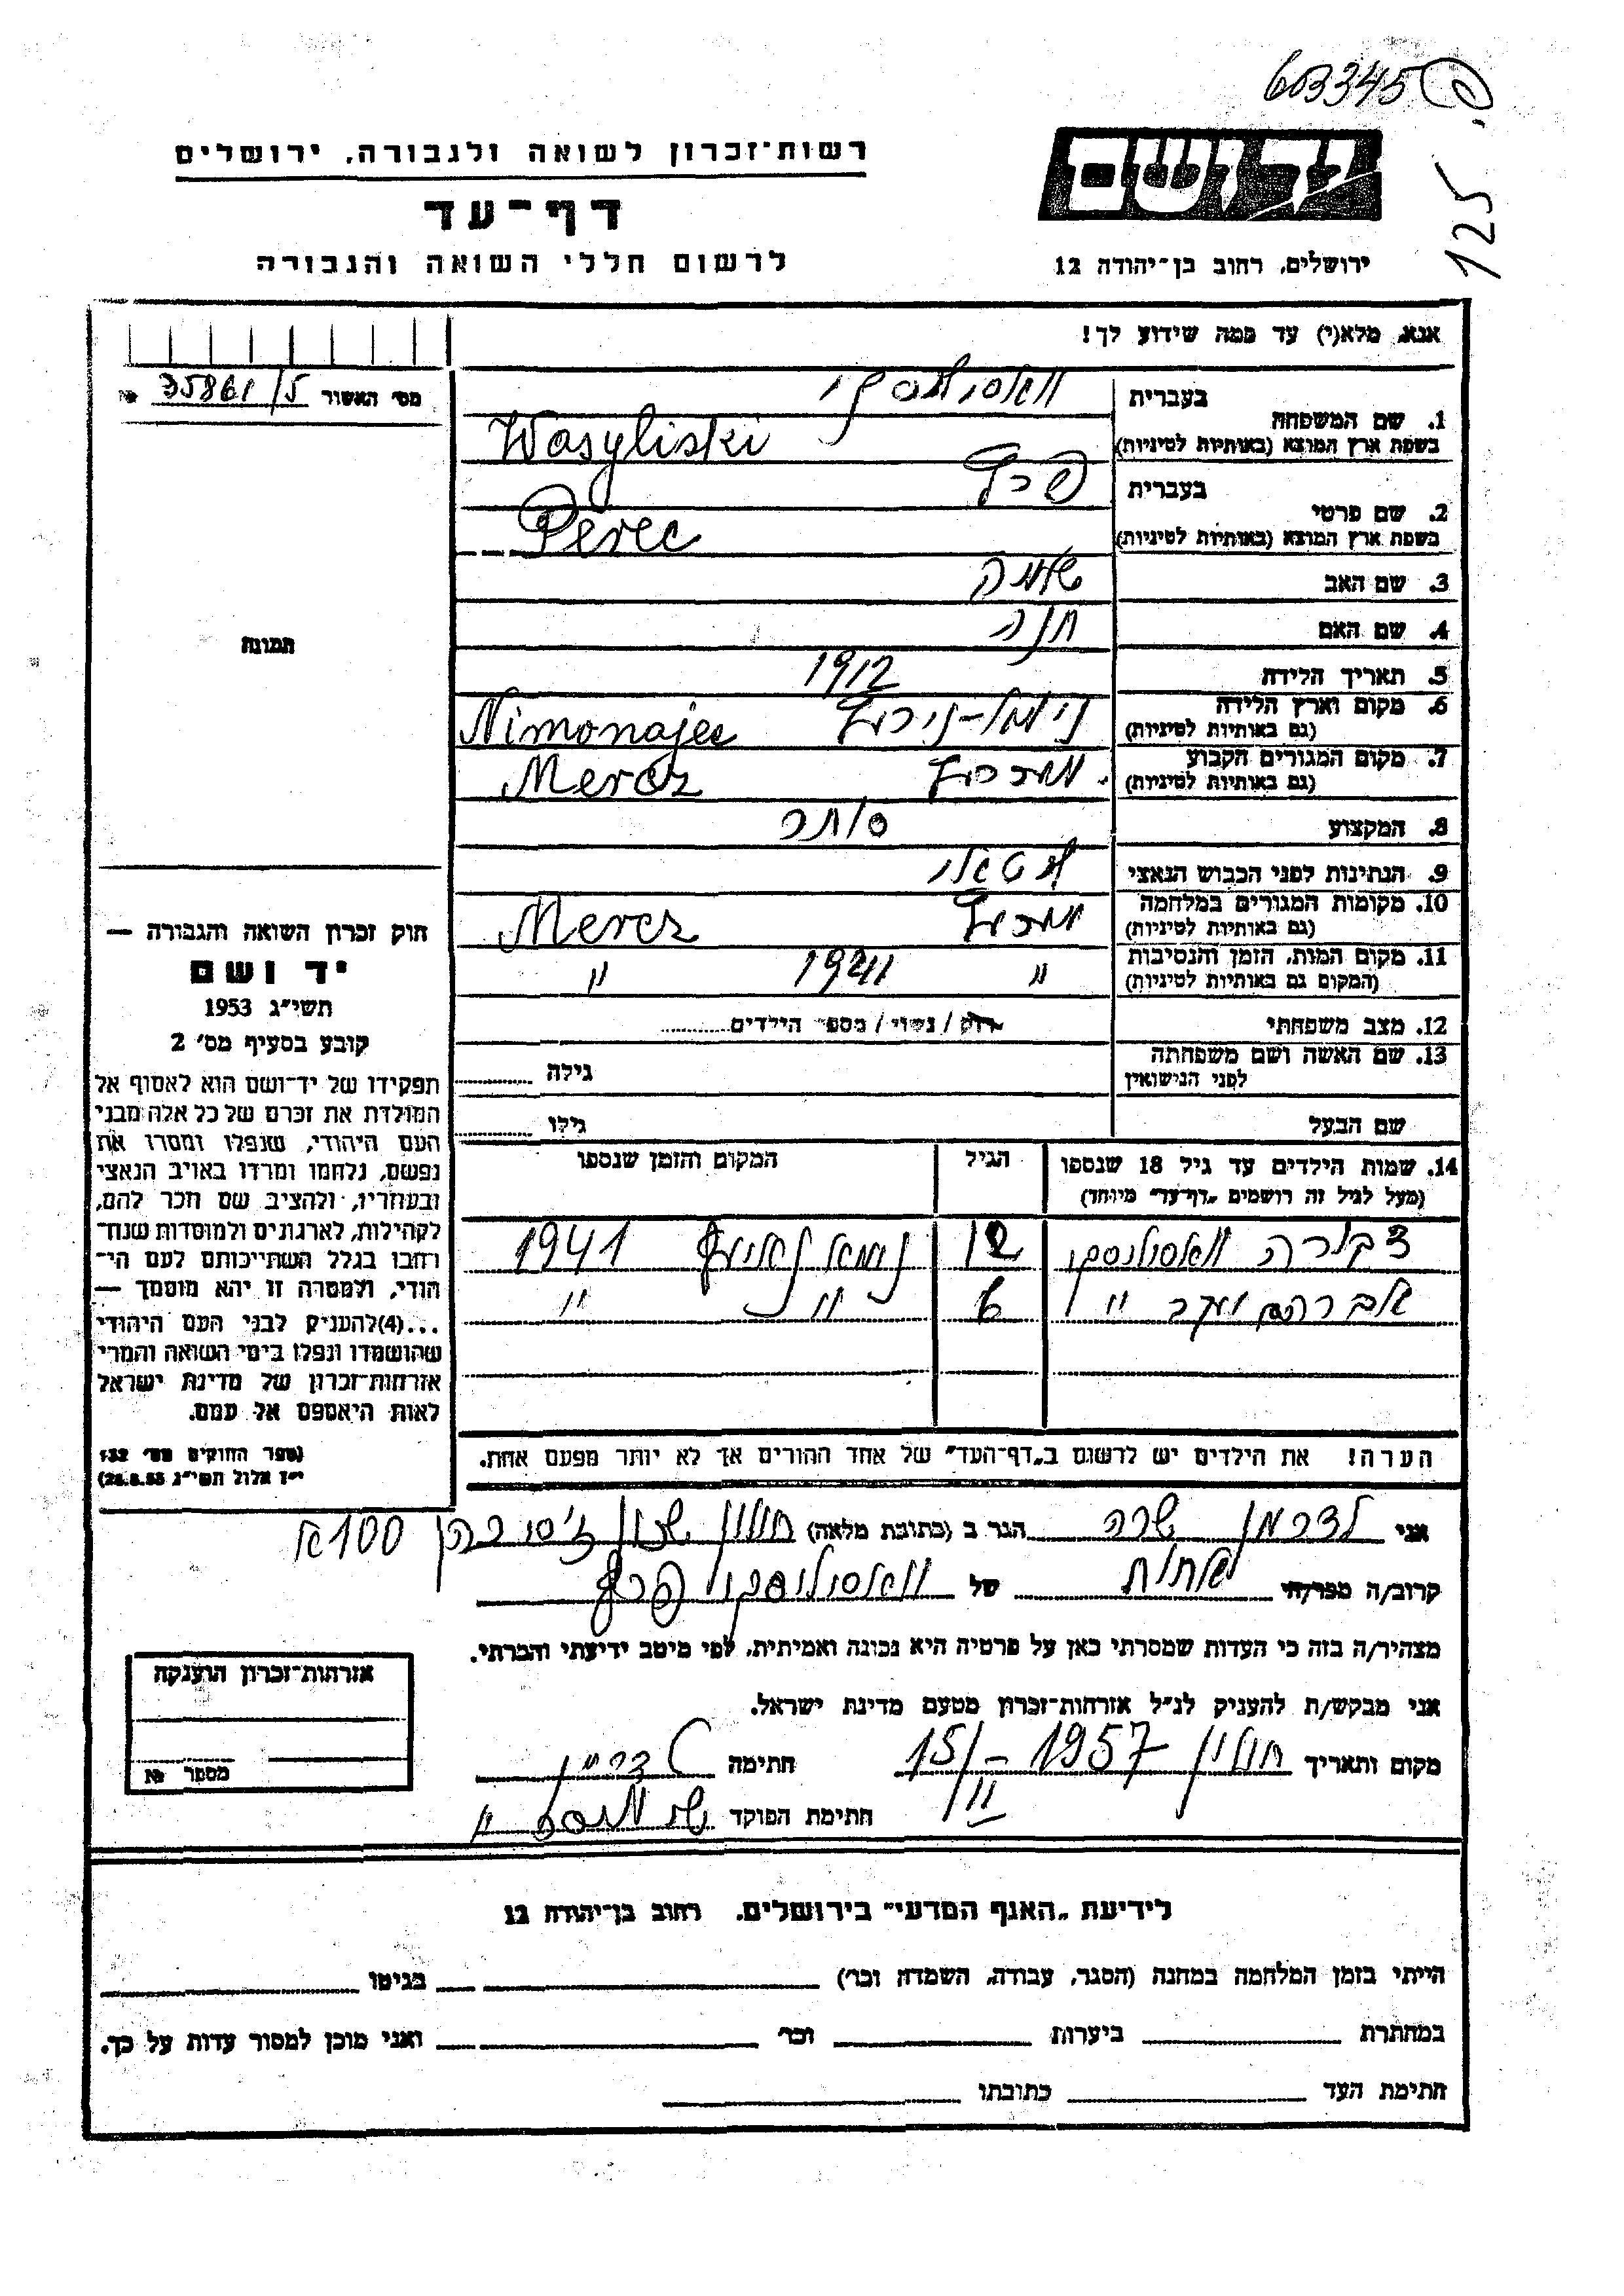 603345
125
רשות־זכרון לשואה ולגבורה, ירושלים
דף־עד
לרשום חללי השואה והגבורה
יד ושם
ירושלים, רחוב בן־יהודה 12
אנא, מלא(י) עד כמה שידוע לך!
מס׳ האשור 35861/5 №
בעברית
1. שם המשפחה
בשפת ארץ המוצא (באותיות לטיניות) Wasyliski
בעברית פרץ
2. שם פרטי
בשפת ארץ המוצא (באותיות לטיניות) Perec
3. שם האב שלמה
4. שם האם חנה
תמונה
5. תאריך הלידה 1912
6. מקום וארץ הלידה Nimonajec
(גם באותיות לטיניות)
7. מקום המגורים הקבוע Mercz
(גם באותיות לטיניות)
8. המקצוע סוחר
9. הנתינות לפני הכבוש הנאצי ליטאי
10. מקומות המגורים במלחמה מרץ Mercz
(גם באותיות לטיניות)
11. מקום המות, הזמן והנסיבות " 1941 "
(המקום גם באותיות לטיניות)
12. מצב משפחתי רווק / נשוי / מספר הילדים
13. שם האשה ושם משפחתה גילה
לפני הנישואין
שם הבעל גילו
14. שמות הילדים עד גיל 18 שנספו הגיל המקום והזמן שנספו
(מעל לגיל זה רושמים „דף־עד״ מיוחד)
דבורה וואסיליסקי 12 1941
אברהם יעקב " 6 " "
הערה! את הילדים יש לרשום ב„דף־העד״ של אחד ההורים אך לא יותר מפעם אחת.
חוק זכרון השואה והגבורה —
יד ושם
תשי״ג 1953
קובע בסעיף מס׳ 2
תפקידו של יד־ושם הוא לאסוף אל
המולדת את זכרם של כל אלה מבני
העם היהודי, שנפלו ומסרו את
נפשם, נלחמו ומרדו באויב הנאצי
ובעוזריו, ולהציב שם וזכר להם,
לקהילות, לארגונים ולמוסדות שנח־
רבו בגלל השתייכותם לעם הי־
הודי, ולמטרה זו יהא מוסמך —
...(4)להעניק לבני העם היהודי
שהושמדו ונפלו בימי השואה והמרי
אזרחות־זכרון של מדינת ישראל
לאות היאספם אל עמם.
(ספר החוקים מס׳ 132
י״ז אלול תשי״ג 28.8.53)
אני לדרמן שרה הגר ב (כתובת מלאה) חולון שכון ג׳סי כהן 100
קרוב/ה מכר/ה אחות של וואסיליסקי פרץ
מצהיר/ה בזה כי העדות שמסרתי כאן על פרטיה היא נכונה ואמיתית, לפי מיטב ידיעתי והכרתי.
אני מבקש/ת להעניק לנ״ל אזרחות־זכרון מטעם מדינת ישראל.
מקום ותאריך חולון 15/II – 1957 חתימה לדרמן
חתימת הפוקד
אזרחות־זכרון הוענקה
מספר №
לידיעת „האגף המדעי״ בירושלים, רחוב בן־יהודה 12
הייתי בזמן המלחמה במחנה (הסגר, עבודה, השמדה וכו׳) בגיטו
במחתרת ביערות וכו׳ ואני מוכן למסור עדות על כך.
חתימת העד כתובתו